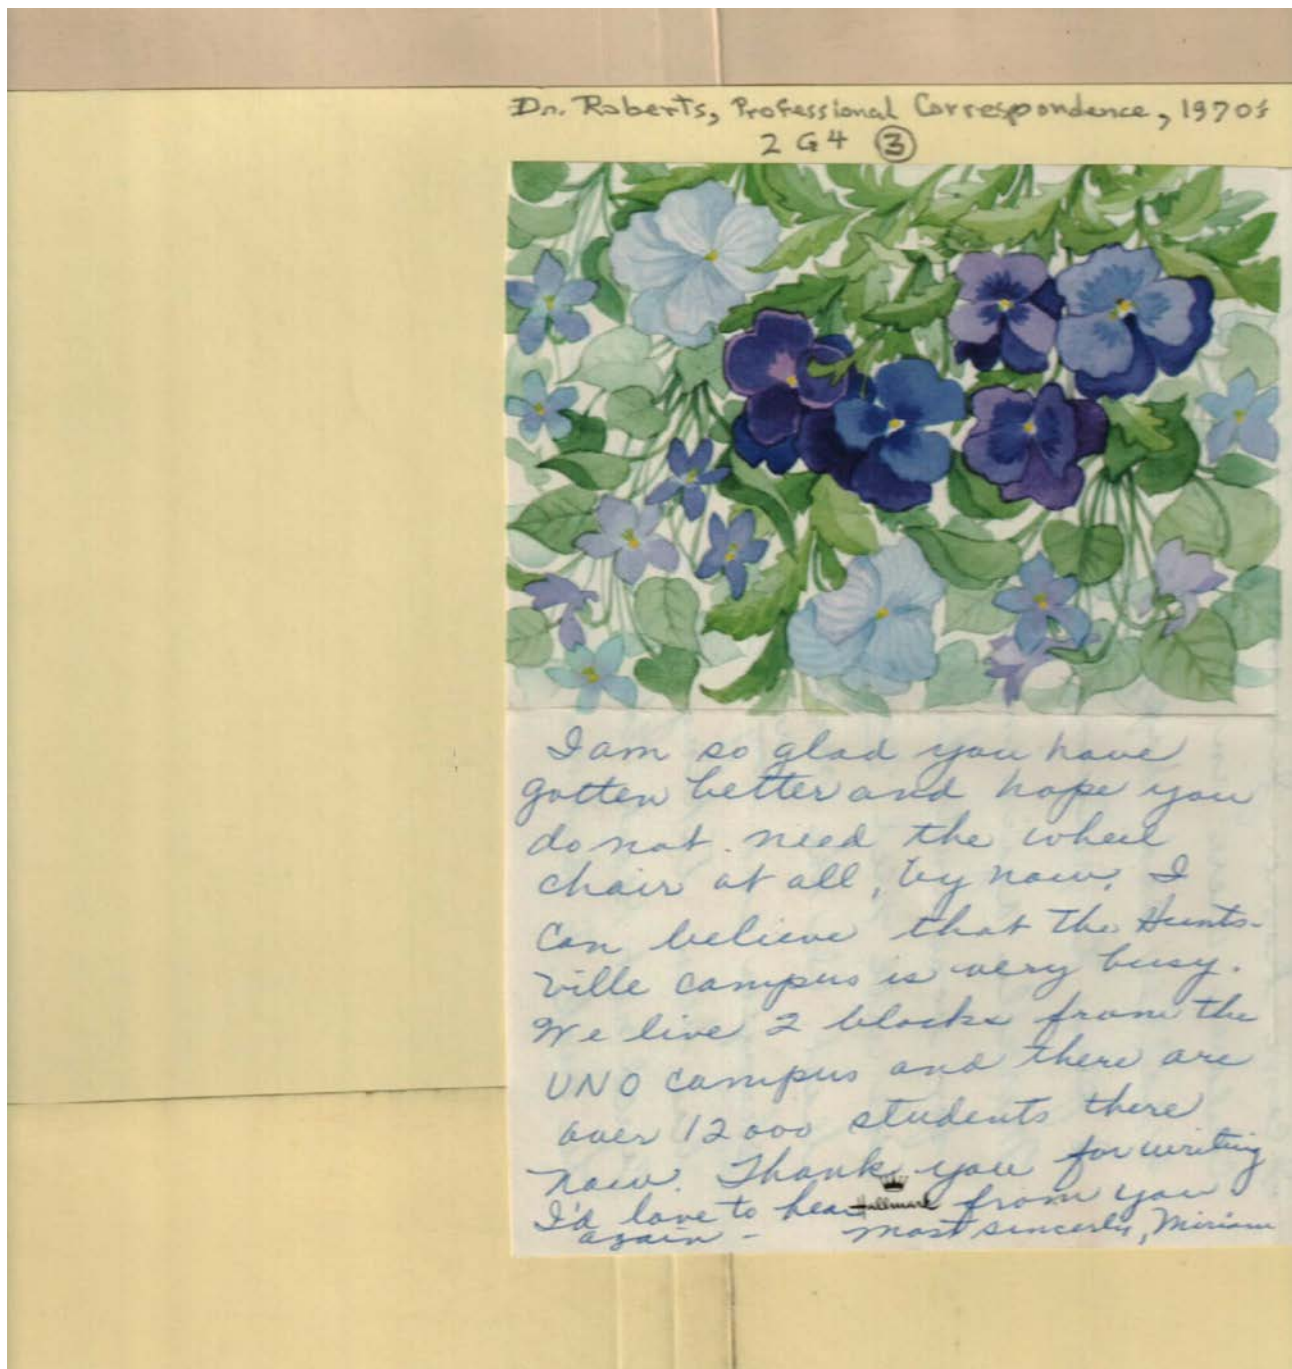 Dr. Roberts, Professional Correspondence, 1970's
2 G4 ③
I am so glad you have
gotten better and hope you
do not need the wheel
chair at all, by now. I
can believe that the Hunts-
ville campus is very busy.
We live 2 blocks from the
UNO campus and there are
over 12000 students there
now. Thank you for writing
I'd love to hear from you
Hallmark
again - most sincerely, Miriam